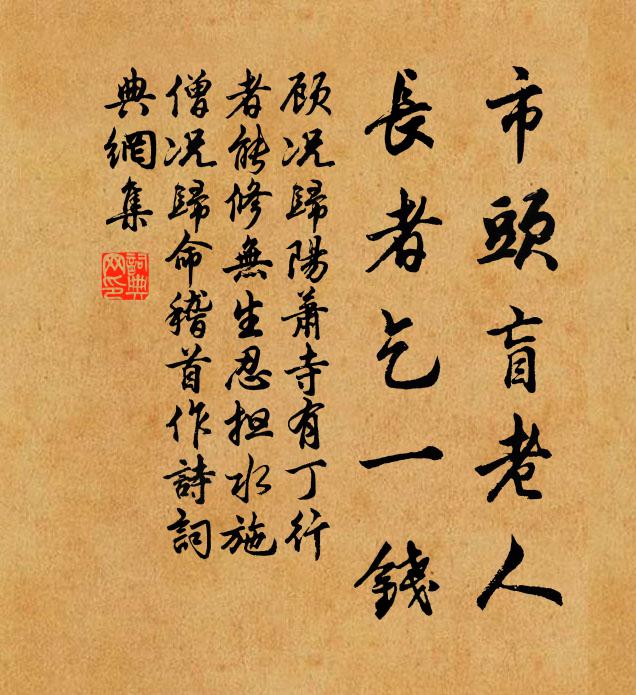 市頭盲老人
長者乞一錢
顧况歸陽蕭寺有丁行
者能修無生忍担水施
僧况歸命稽首作詩詞
典網集
詞典網印